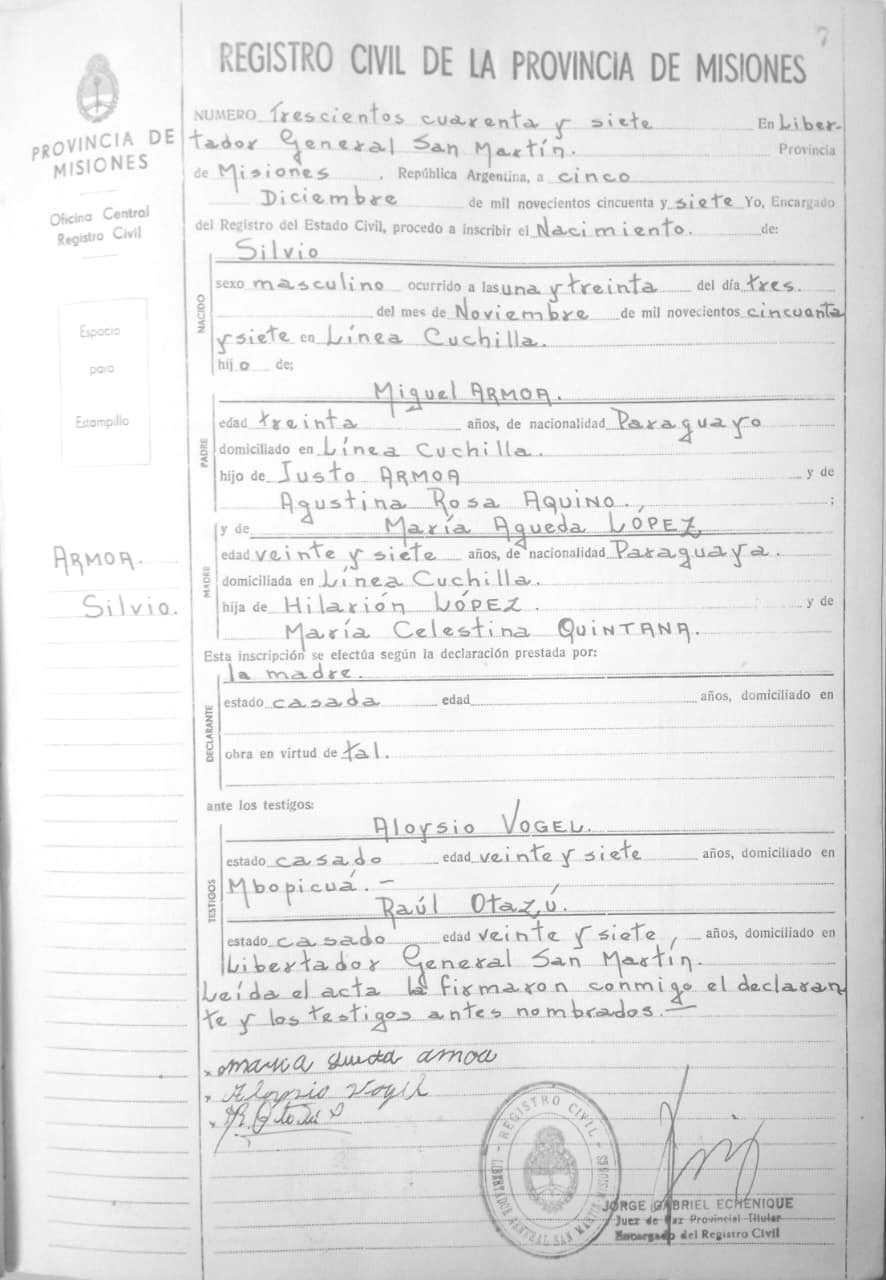 7
REGISTRO CIVIL DE LA PROVINCIA DE MISIONES
PROVINCIA DE
MISIONES
Oficina Central
Registro Civil
Espacio
para
Estampilla
ARMOA.
Silvio.
NUMERO Trescientos cuarenta y siete En Liber-
tador General San Martín. Provincia
de Misiones, República Argentina, a cinco
Diciembre de mil novecientos cincuenta y siete Yo, Encargado
del Registro del Estado Civil, procedo a inscribir el Nacimiento. de:
Silvio
NACIDO
sexo masculino ocurrido a las una y treinta del día tres.
del mes de Noviembre de mil novecientos cincuenta
y siete en Línea Cuchilla.
hijo de;
Miguel ARMOA.
PADRE
edad treinta años, de nacionalidad Paraguayo
domiciliado en Línea Cuchilla.
hijo de Justo ARMOA y de
Agustina Rosa AQUINO. ;
y de María Agueda LÓPEZ
MADRE
edad veinte y siete años, de nacionalidad Paraguaya.
domiciliada en Línea Cuchilla.
hija de Hilarión LÓPEZ. y de
María Celestina QUINTANA.
Esta inscripción se efectúa según la declaración prestada por:
la madre.
DECLARANTE
estado casada edad años, domiciliado en
obra en virtud de tal.
ante los testigos:
Aloysio VOGEL.
TESTIGOS
estado casado edad veinte y siete años, domiciliado en
Mbopicuá.-
Raúl Otazú.
estado casado edad veinte y siete, años, domiciliado en
Libertador General San Martín.
Leída el acta la firmaron conmigo el declaran
te y los testigos antes nombrados.-
maria amoa
Aloysio Vogel
REGISTRO CIVIL - LIBERTADOR GENERAL SAN MARTIN MISIONES
JORGE GABRIEL ECHENIQUE
Juez de Paz Provincial Titular
Encargado del Registro Civil